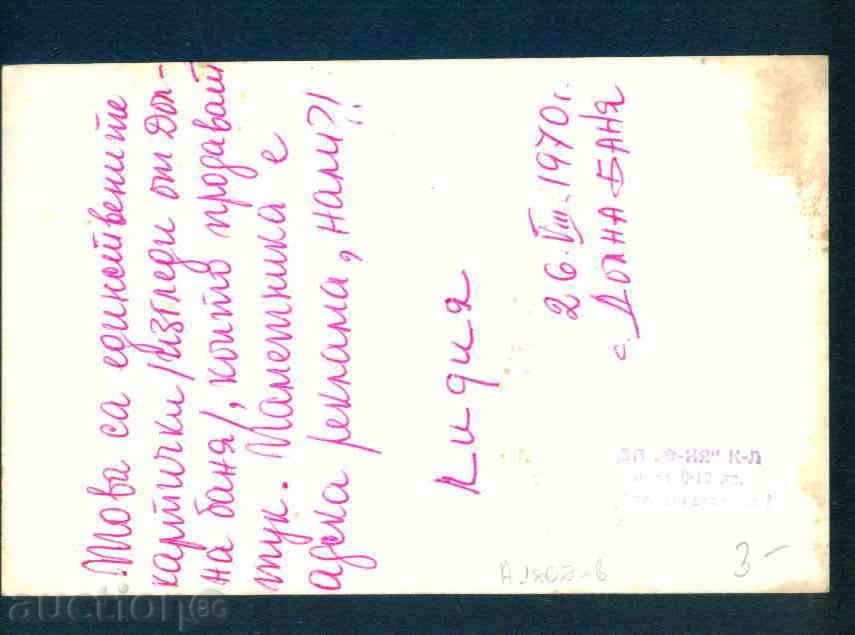 Това са единствените
картички /изгледи от Дол-
на баня/, които продават
тук. Паметника е
адска реклама, нали?!
Лидия
26.VIII.1970г.
с. ДОЛНА БАНЯ
К-Л
A 1803-6
3-
auction BG